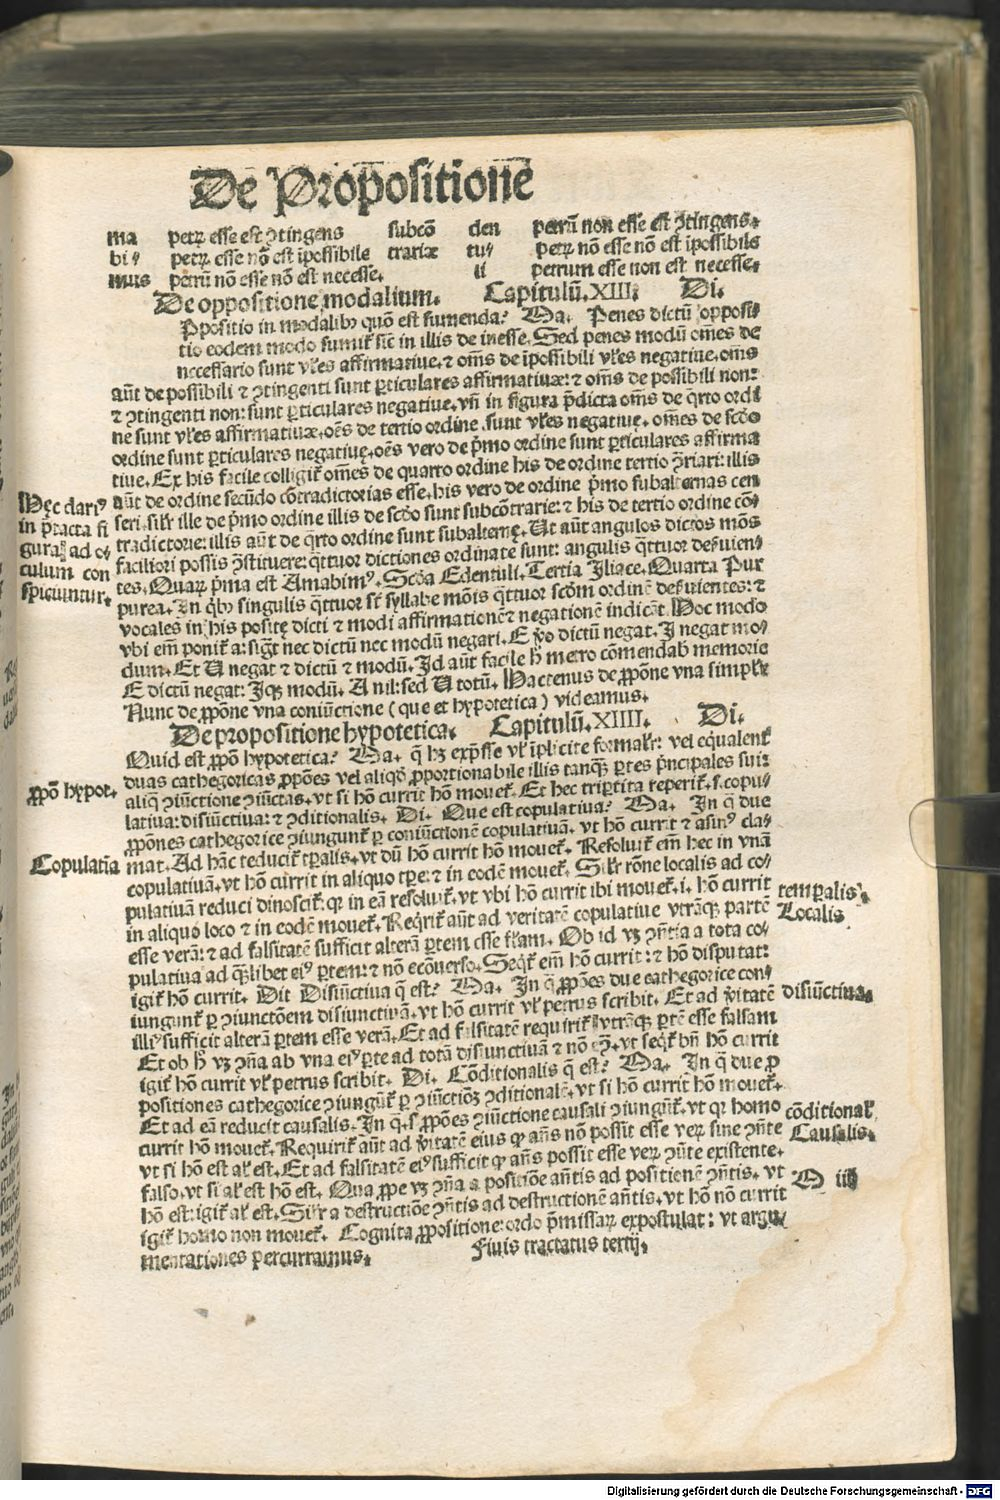 De Propositione
ma petrꝝ esse est ↄtingens subcō den petrū non esse est ↄtingens.
bi⸗ petrꝝ esse nō est īpossibile trariæ tu⸗ petrꝝ nō esse nō est īpossibile
mus petrū nō esse nō est necesse. li petrum esse non est necesse.
De oppositione modalium. Capitulū. XIII. Di.
Ppositio in modalibꝰ quō est sumenda? Ma. Penes dictū opposi⸗
tio eodem modo sumit᷑ sic̄ in illis de inesse. Sed penes modū om̄es de
necessario sunt vl̓es affirmatiue. ⁊ om̄s de īpossibili vl̓es negatiue. om̄s
aūt de possibili ⁊ ↄtingenti sunt ꝑticulares affirmatiuæ: ⁊ om̄s de possibili non:
⁊ ↄtingenti non: sunt ꝑticulares negatiue. vñ in figura p̄dicta om̄s de q̈rto ordi
ne sunt vl̓es affirmatiuæ. oēs de tertio ordine sunt vl̓es negatiue. om̄es de scd̓o
ordine sunt ꝑticulares negatiuę. oēs vero de p̓mo ordine sunt ꝑticulares affirma
tiue. Ex his facile colligit᷑ om̄es de quarto ordine his de ordine tertio ↄ̄riari: illis
aūt de ordine secūdo cōtradictorias esse. his vero de ordine p̓mo subalternas cen
seri. sil̓r ille de p̓mo ordine illis de scd̓o sunt subcōtrarie: ⁊ his de tertio ordine cō⸗
tradictorie: illis aūt de q̈rto ordine sunt subalternę. Ut aūt angulos dictos mō̄s
faciliori possis ↄ̄stituere: q̈ttuor dictiones ordinate sunt: angulis q̈ttuor deẜuien⸗
tes. Quaꝝ p̓ma est Amabimꝰ. Scd̓a Edentuli. Tertia Iliace. Quarta Pur
purea. In q̓bꝰ singulis q̈ttuor sr̄ syllabe mōis q̈ttuor scd̓m ordinē deẜuientes: ⁊
vocales in his positę dicti ⁊ modi affirmationē ⁊ negationē indicēt. Hoc modo
vbi em̄ ponit᷑ a: sigt̄ nec dictū nec modū negari. E v̓o dictū negat. I negat mo⸗
dum. Et U negat ⁊ dictū ⁊ modū. Id aūt facile h̓ metro cōmendab memorie
E dictū negat: Iqꝫ modū. A nil: sed U totū. Hactenus de ꝓpōne vna simpl̓r
Nunc de ꝓpōne vna coniūctione (que et hypotetica) videamus.
De propositione hypotetica. Capitulū. XIIII. Di.
Quid est ꝓpō hypotetica? Ma. q̄ hꝫ exp̄sse vl̓ īplicite formal̓r: vel equalent᷑
duas cathegoricas ꝓpōes vel aliqd̓ ꝓportionabile illis tanqꝫ ꝑtes p̓ncipales sui:
aliq̄ ↄiūctione ↄiūctas. vt si hō currit hō mouet᷑. Et hec triptita reperit᷑. s. copu⸗
latiua: disiūctiua: ⁊ ↄditionalis. Di. Que est copulatiua? Ma. In q̄ due
ꝓpōnes cathegorice ↄiungunt᷑ ꝑ coniūctionē copulatiuā. vt hō currit ⁊ asinꝰ cla⸗
mat. Ad hāc reducit᷑ tꝑalis. vt dū hō currit hō mouet᷑. Resoluit᷑ em̄ hec in vnā
copulatiuā. vt hō currit in aliquo tꝑe: ⁊ in eodē mouet᷑. Sil̓r rōne localis ad co⸗
pulatiuā reduci dinoscit᷑: qꝛ in eā resoluit᷑. vt vbi hō currit ibi mouet᷑. i. hō currit
in aliquo loco ⁊ in eodē mouet᷑. Reqrit᷑ aūt ad veritatē copulatiue vtrāqꝫ partē
esse verā: ⁊ ad falsitatē sufficit alterā ꝑtem esse fl̓am. Ob id vꝫ ↄ̄ntia a tota co⸗
pulatiua ad q̄libet eiꝰ ꝑtem: ⁊ nō ecōuerso. Seqt᷑ em̄ hō currit: ⁊ hō disputat:
igit᷑ hō currit. Dit Disiūctiua q̄ est? Ma. In q̄ ꝓpōes due cathegorice con⸗
iungunt᷑ ꝑ ↄiunctōem disiunctiuā. vt hō currit vl̓ petrus scribit. Et ad v̓itatē
illiꝰ sufficit alterā ꝑtem esse verā. Et ad falsitatē requirit᷑ vtrāqꝫ ꝑtē esse falsam
Et ob h̓ vꝫ ↄ̄ña ab vna eiꝰ ꝑte ad totā disiunctiuā ⁊ nō eↄ̄. vt seqt᷑ bn̄ hō currit
igit᷑ hō currit vl̓ petrus scribit. Di. Cōditionalis q̄ est? Ma. In q̄ due ꝓ
positiones cathegorice ↄiungūt᷑ ꝑ ↄiunctiōꝫ ↄditionalē. vt si hō currit hō mouet᷑.
Et ad eā reducit causalis. In q̄. s. ꝓpōes ↄiunctione causali ↄiungūt᷑. vt qꝛ homo
currit hō mouet᷑. Requirit᷑ aūt ad v̓itatē eius ꝙ an̄s nō possit esse veꝝ sine ↄ̄nte
vt si hō est al̓ est. Et ad falsitatē eiꝰ sufficit ꝙ an̄s possit esse veꝝ ↄ̄nte existente.
falso. vt si al̓ est hō est. Qua ꝓpe vꝫ ↄ̄ña a positiōe an̄tis ad positionē ↄ̄ntis. vt
hō est: igit᷑ al̓ est. Sil̓r a destructiōe ↄ̄ntis ad destructionē an̄tis. vt hō nō currit
igit᷑ homo non mouet᷑. Cognita ꝓpositione: ordo p̓missaꝝ expostulat: vt argu⸗
mentationes percurramus. Finis tractatus tertij.
Hęc dariꝰ
in p̄tacta fi
gura ad o⸗
culum con
spiciuntur.
ꝓpō hypot.
Copulatīa
temꝑalis.
Localis
disiūctiua.
cōditional᷑
Causalis.
O iiij
Digitalisierung gefördert durch die Deutsche Forschungsgemeinschaft - DFG